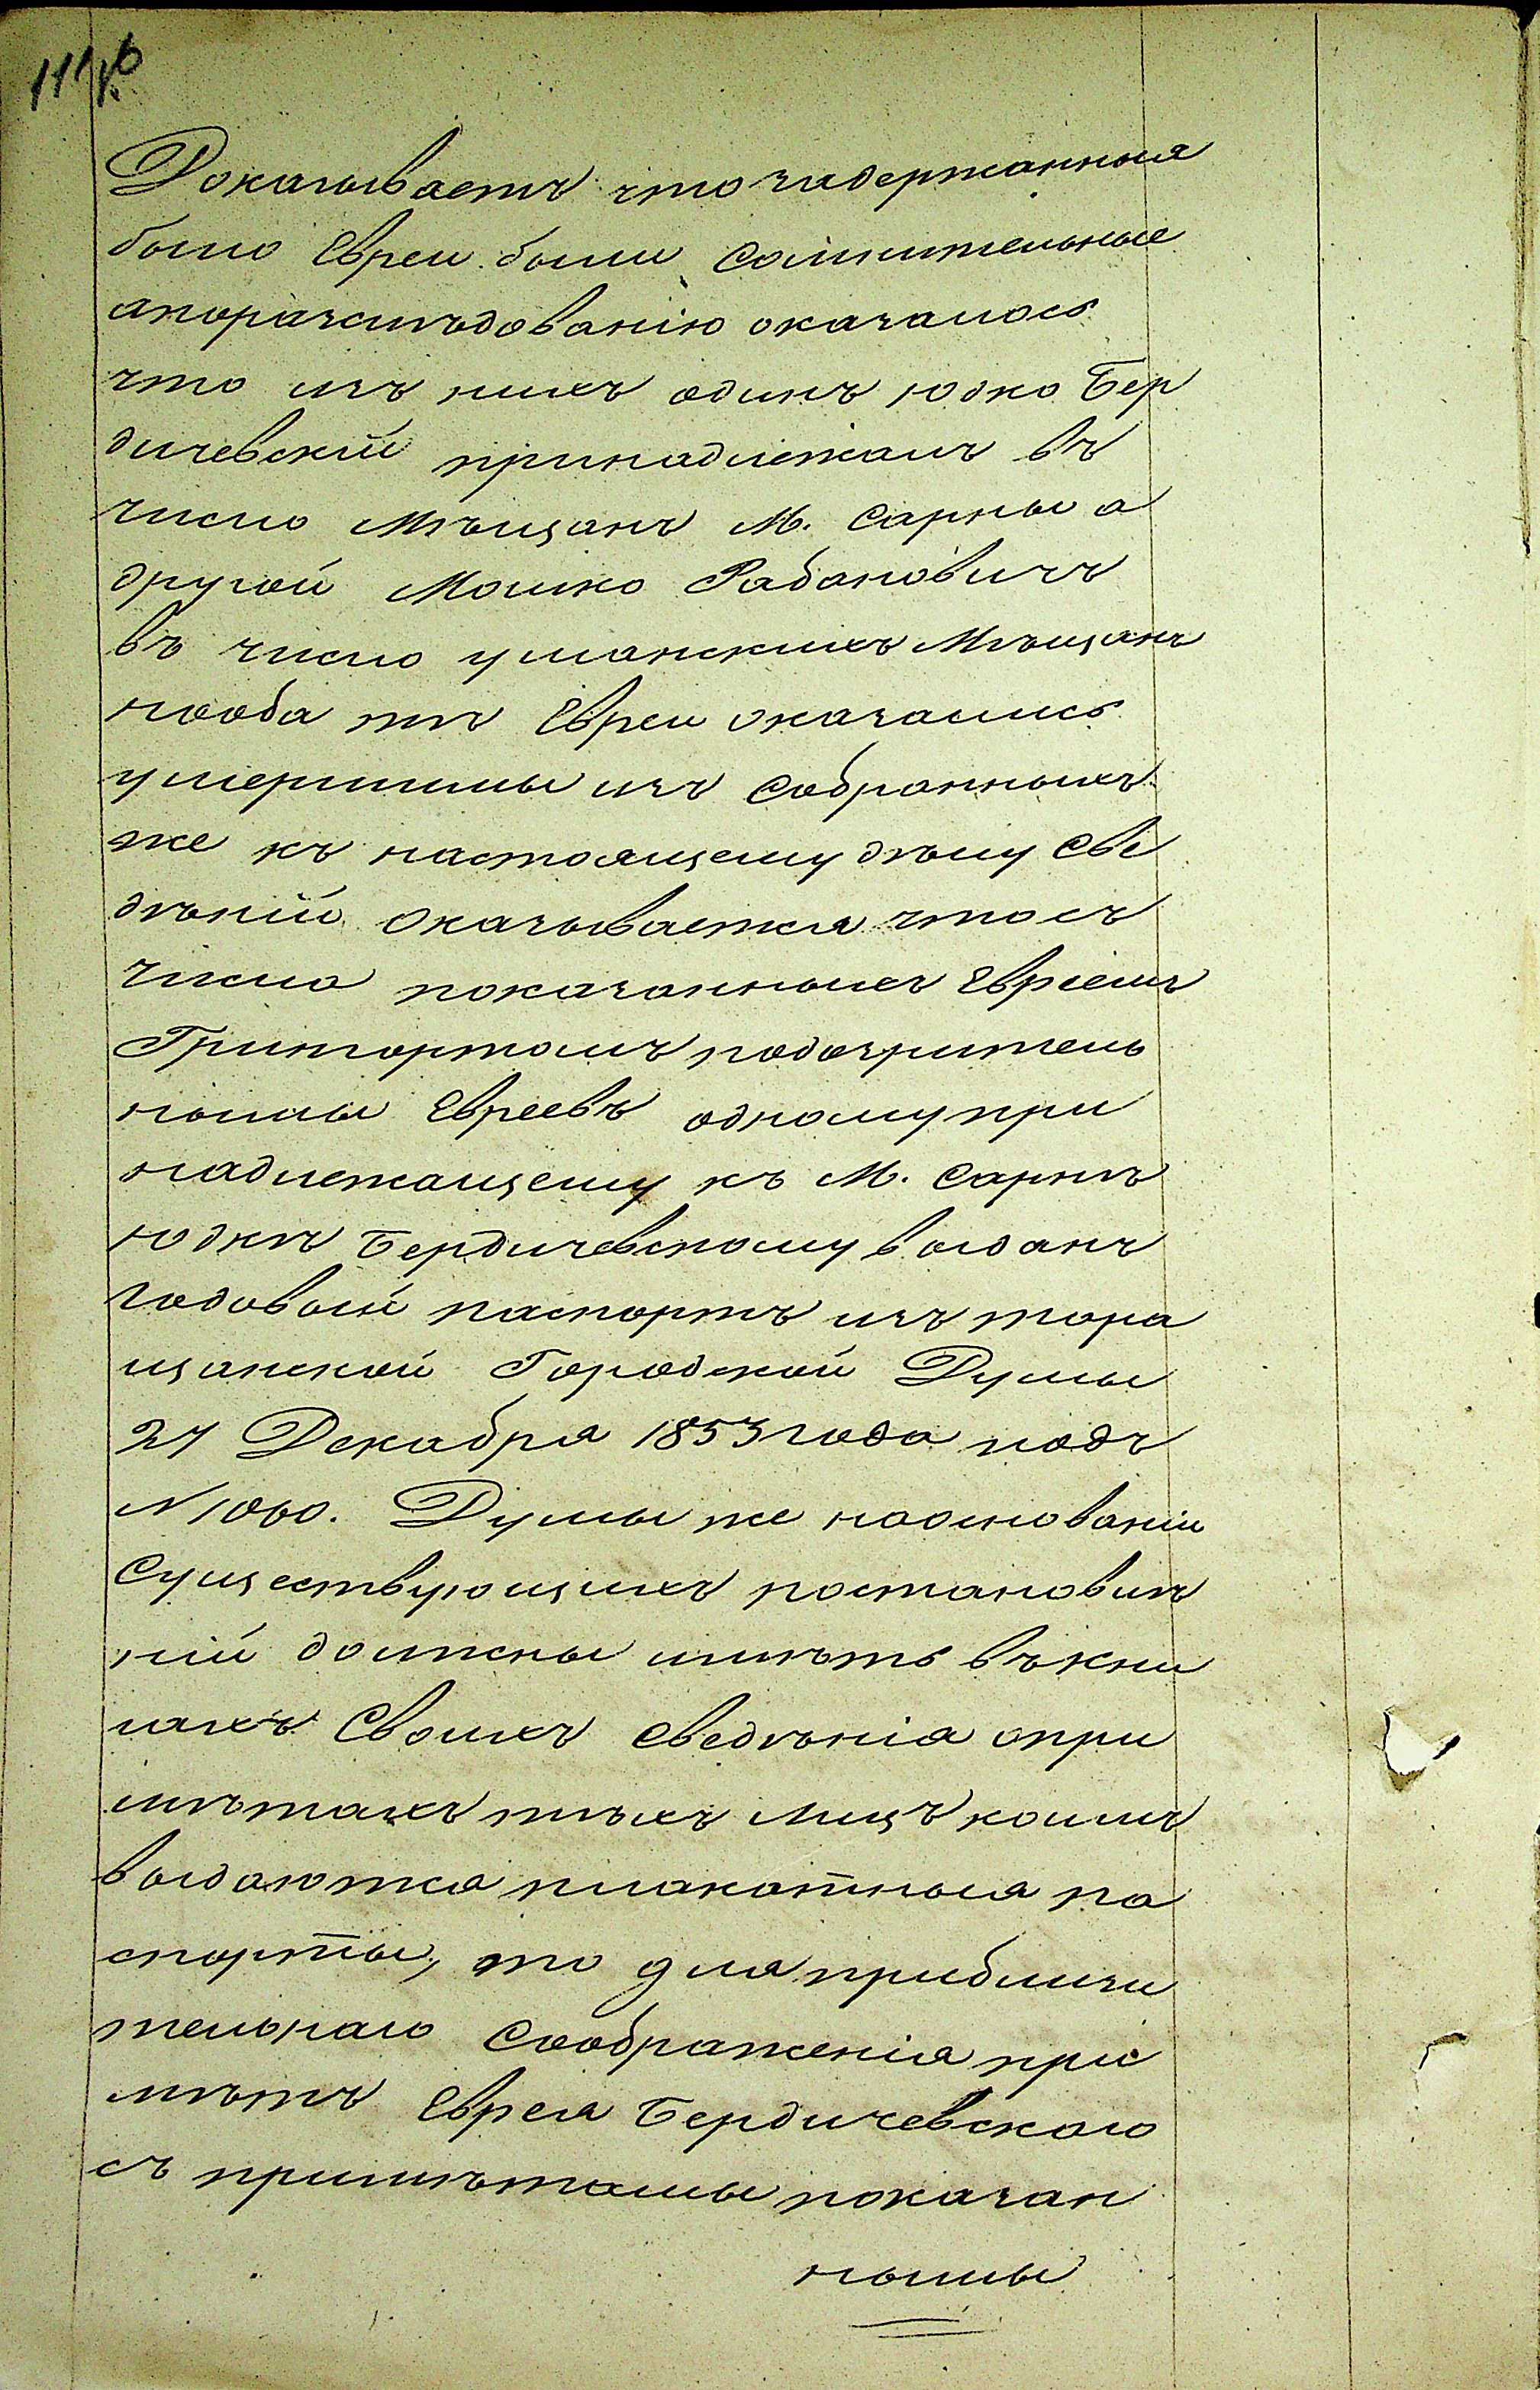 Доказываетъ что задержанныя
было Евреи были Сомнительные
апоразслѣдованію оказалось
что изъ нихъ одинъ юдко Бер
дичевскій принадлежалъ въ
число Мѣщанъ М. Сарны а
другой Мошко Рабановичъ
въ число уманскихъ Мѣщанъ
нооба тѣ Евреи оказались
умершимы изъ Собранныхъ
же къ настоящему дѣлу Све
дѣній Оказывается что съ
числа показанныхъ Евріемъ
подозритель
нымы Евреевъ одному при
надлежащему къ М. Сарнѣ
юдкѣ Бердичевскому выданъ
годовый паспортъ изъ тора
щанской Городской Думы
27 Декабря 1853 года подъ
N 1060. Думы же наоснованіи
Существующихъ постановлѣ
ній должны имѣть въ кни
гахъ Своихъ Сведѣнія опри
мѣтахъ тѣхъ лицъ коимъ
выдаются плакатныя па
спорты, то для приблизи
тельнаго Соображенія прі
мѣтъ Еврея Бердичевского
съ примѣтамы показан
нымы